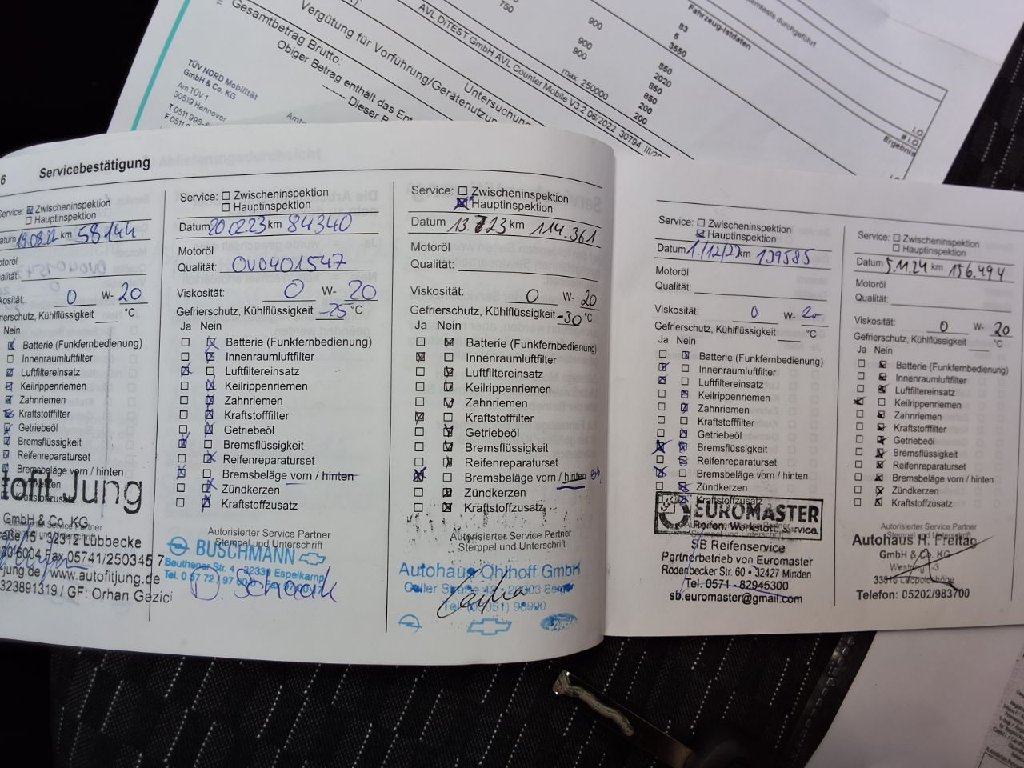 TÜV NORD Mobilität
GmbH & Co. KG
Am TÜV 1
30519 Hannover
Gesamtbetrag Brutto:
Vergütung für Vorführung/Gerätenutzung
Obiger Betrag enthält das
Untersuchung
AVL DITEST GmbH AVL Counter Mobile V3.2 06/2022
750
900
900
900
max. 250000
Fahrzeug-Istdaten
63
6
3550
650
2020
850
850
200
200
durchgeführt
i.O.
Ergebnis
6 Servicebestätigung
Service: Zwischeninspektion
Hauptinspektion
Datum 09.08.22 km 58144
0 W- 20
°C
Nein
Batterie (Funkfernbedienung)
Innenraumluftfilter
Luftfiltereinsatz
Keilrippenriemen
Zahnriemen
Kraftstofffilter
Getriebeöl
Bremsflüssigkeit
Reifenreparaturset
Bremsbeläge vorn / hinten
tofit Jung
GmbH & Co. KG
32312 Lübbecke
05741/250345 7
www.autofitjung.de
GF: Orhan Gezici
Service: Zwischeninspektion
Hauptinspektion
Datum 20.02.23 km 84340
Motoröl
Qualität: OV0401547
Viskosität: 0 W- 20
Gefrierschutz, Kühlflüssigkeit -25 °C
Ja Nein
Batterie (Funkfernbedienung)
Innenraumluftfilter
Luftfiltereinsatz
Keilrippenriemen
Zahnriemen
Kraftstofffilter
Getriebeöl
Bremsflüssigkeit
Reifenreparaturset
Bremsbeläge vorn / hinten
Zündkerzen
Kraftstoffzusatz
Autorisierter Service Partner
Stempel und Unterschrift
BUSCHMANN
32339 Espelkamp
Service: Zwischeninspektion
Hauptinspektion
Datum 13.7.23 km 114.361
Motoröl
Qualität:
Viskosität: 0 W- 20
Gefrierschutz, Kühlflüssigkeit -30 °C
Ja Nein
Batterie (Funkfernbedienung)
Innenraumluftfilter
Luftfiltereinsatz
Keilrippenriemen
Zahnriemen
Kraftstofffilter
Getriebeöl
Bremsflüssigkeit
Reifenreparaturset
Bremsbeläge vorn / hinten
Zündkerzen
Kraftstoffzusatz
Autorisierter Service Partner
Stempel und Unterschrift
Autohaus Ohlhoff GmbH
Service: Zwischeninspektion
Hauptinspektion
Datum 1.12.23 km 139585
Motoröl
Qualität:
Viskosität: 0 W- 20
Gefrierschutz, Kühlflüssigkeit °C
Ja Nein
Batterie (Funkfernbedienung)
Innenraumluftfilter
Luftfiltereinsatz
Keilrippenriemen
Zahnriemen
Kraftstofffilter
Getriebeöl
Bremsflüssigkeit
Reifenreparaturset
Bremsbeläge vorn / hinten
Zündkerzen
Kraftstoffzusatz
EUROMASTER
Reifen. Werkstatt. Service.
SB Reifenservice
Partnerbetrieb von Euromaster
Rodenbecker Str. 60 • 32427 Minden
Tel. 0571 - 82945300
sb.euromaster@gmail.com
Service: Zwischeninspektion
Hauptinspektion
Datum 5.11.24 km 156.494
Motoröl
Qualität:
Viskosität: 0 W- 20
Gefrierschutz, Kühlflüssigkeit °C
Ja Nein
Batterie (Funkfernbedienung)
Innenraumluftfilter
Luftfiltereinsatz
Keilrippenriemen
Zahnriemen
Kraftstofffilter
Getriebeöl
Bremsflüssigkeit
Reifenreparaturset
Bremsbeläge vorn / hinten
Zündkerzen
Kraftstoffzusatz
Autorisierter Service Partner
Autohaus H. Freitag
GmbH & Co. KG
Leopoldshöhe
Telefon: 05202/983700